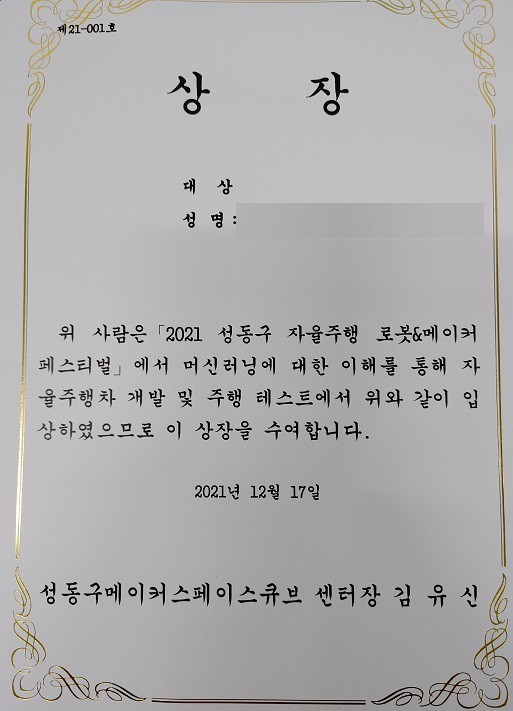 제21-001호
상 장
대 상
성 명 :
위 사람은 「2021 성동구 자율주행 로봇&메이커
페스티벌」에서 머신러닝에 대한 이해를 통해 자
율주행차 개발 및 주행 테스트에서 위와 같이 입
상하였으므로 이 상장을 수여합니다.
2021년 12월 17일
성동구메이커스페이스큐브 센터장 김 유 신